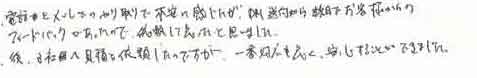 電話やメールでのやり取りで不安に感じたが、数日でお客様からの
フィードバックがあったので、依頼して良かったと思いました。
後、3社程へ見積を依頼したのですが、一番対応も良く、安心することができました。